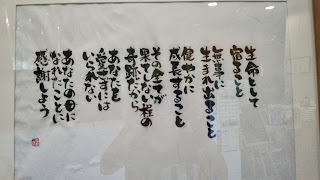 生命として
宿ること
無事に
生まれ出ること
健やかに
成長すること
その全てが
果てしない程の
奇跡だから
あなたを
愛さずには
いられない
あなたの母に
なれたことに
感謝しよう